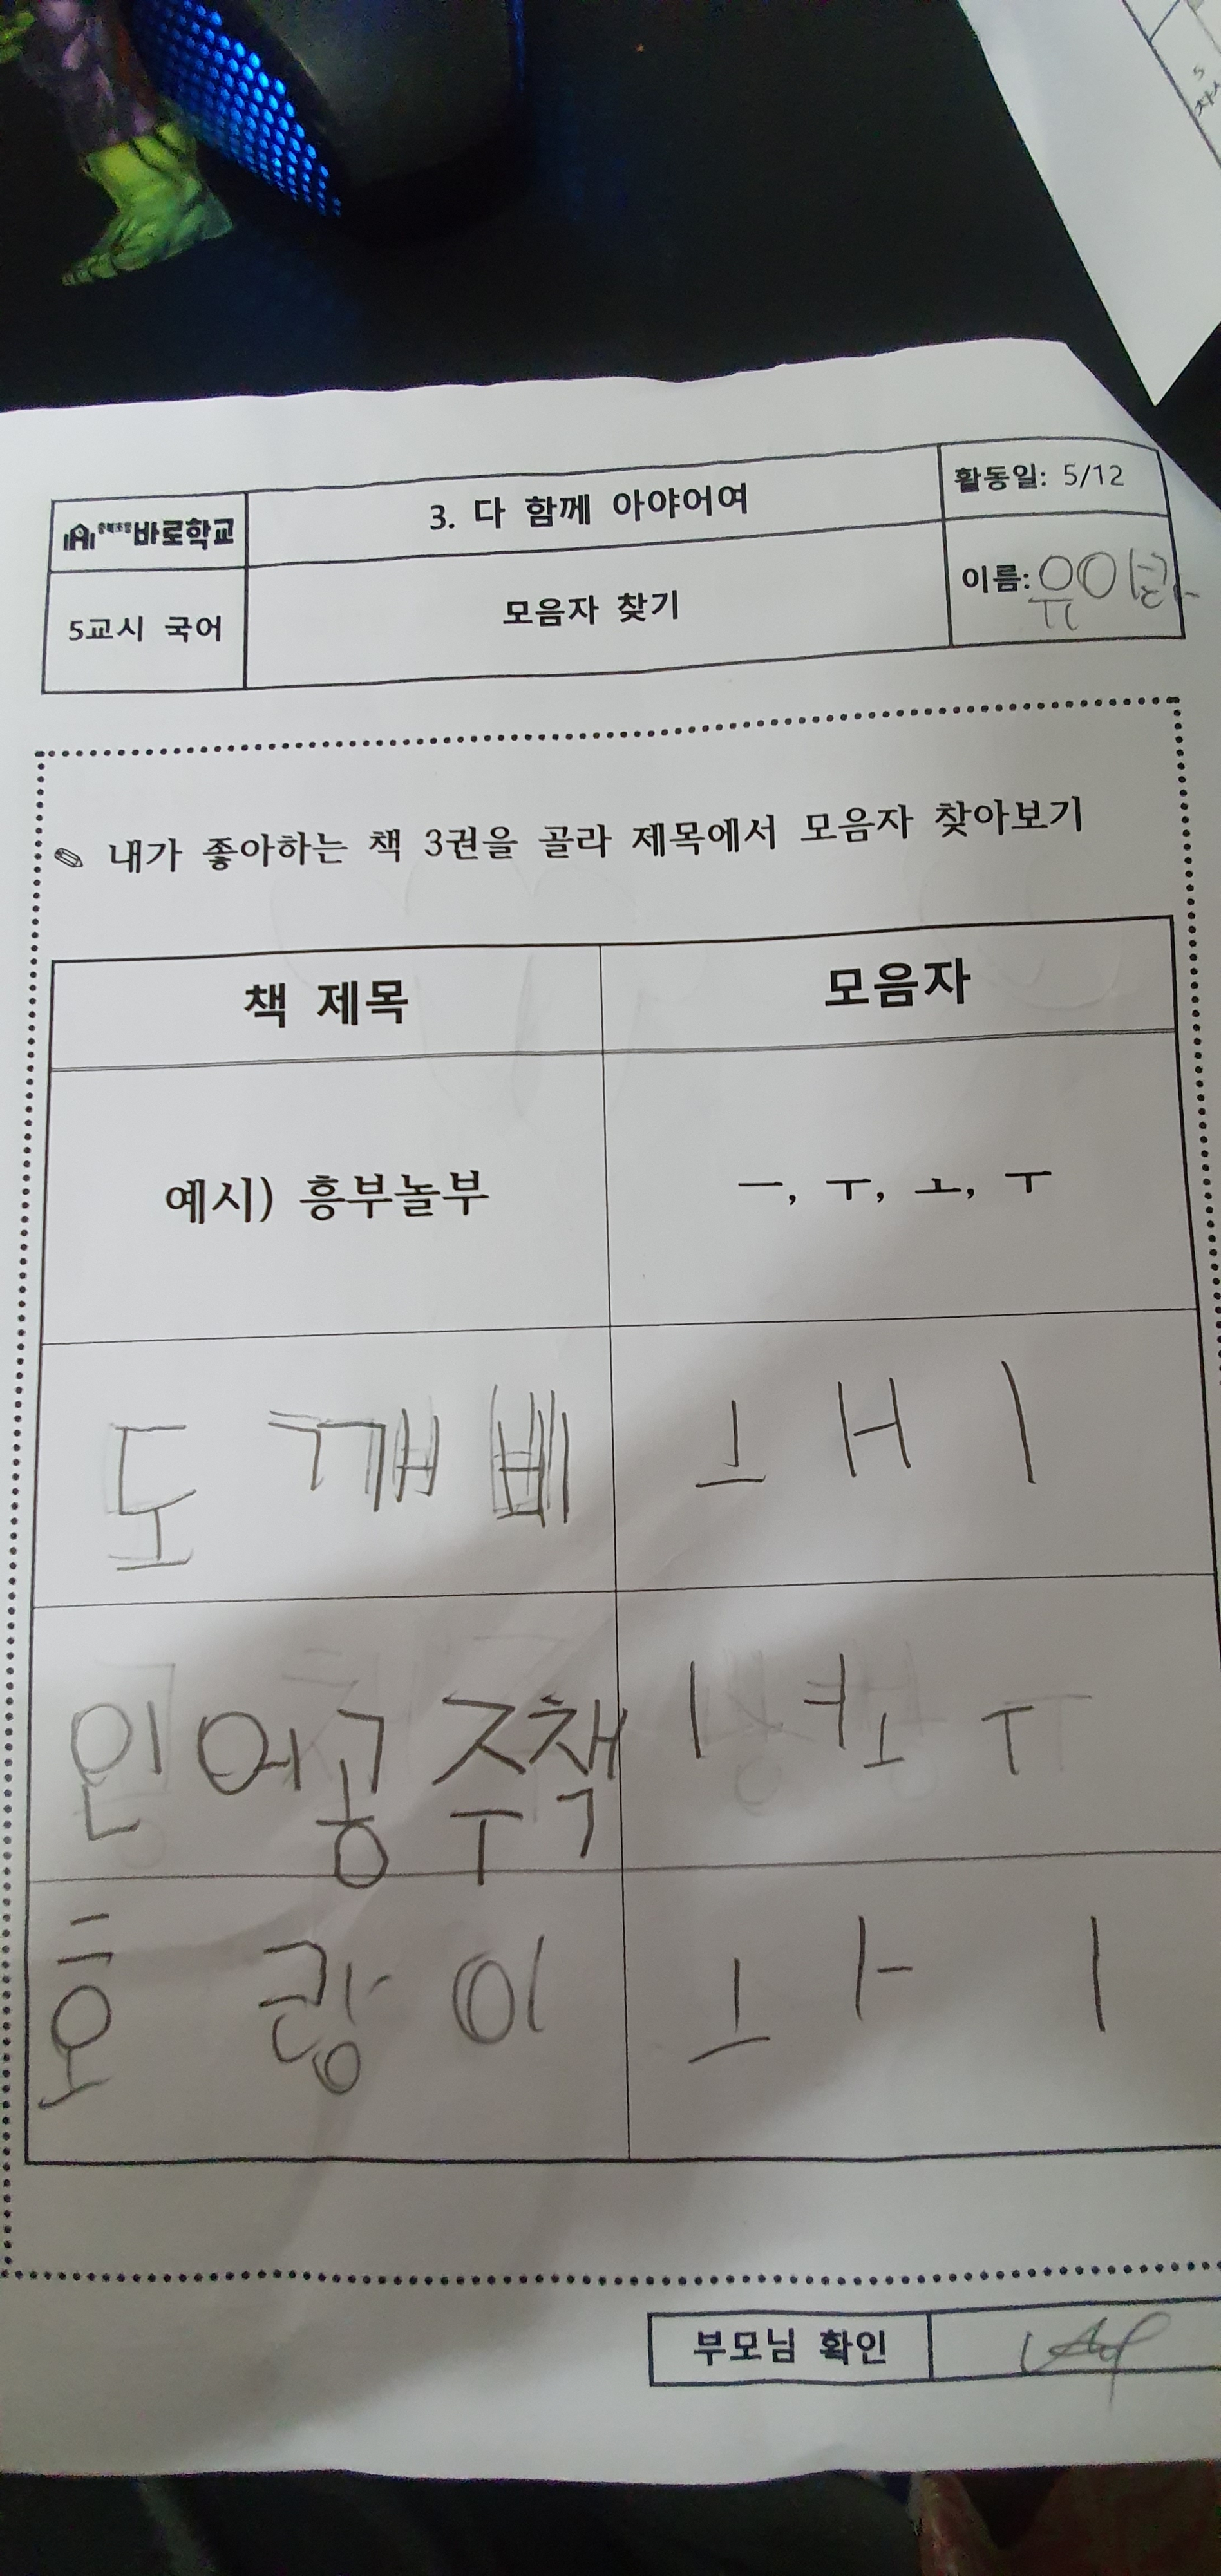 충북초등 바로학교
3. 다 함께 아야어여
활동일: 5/12
5교시 국어
모음자 찾기
이름: 유이란
✎ 내가 좋아하는 책 3권을 골라 제목에서 모음자 찾아보기
책 제목 모음자
예시) 흥부놀부 ㅡ, ㅜ, ㅗ, ㅜ
도 깨 비 ㅗ ㅐ ㅣ
인어공주책 ㅣ ㅓ ㅗ ㅜ
호 랑 이 ㅗ ㅏ ㅣ
부모님 확인